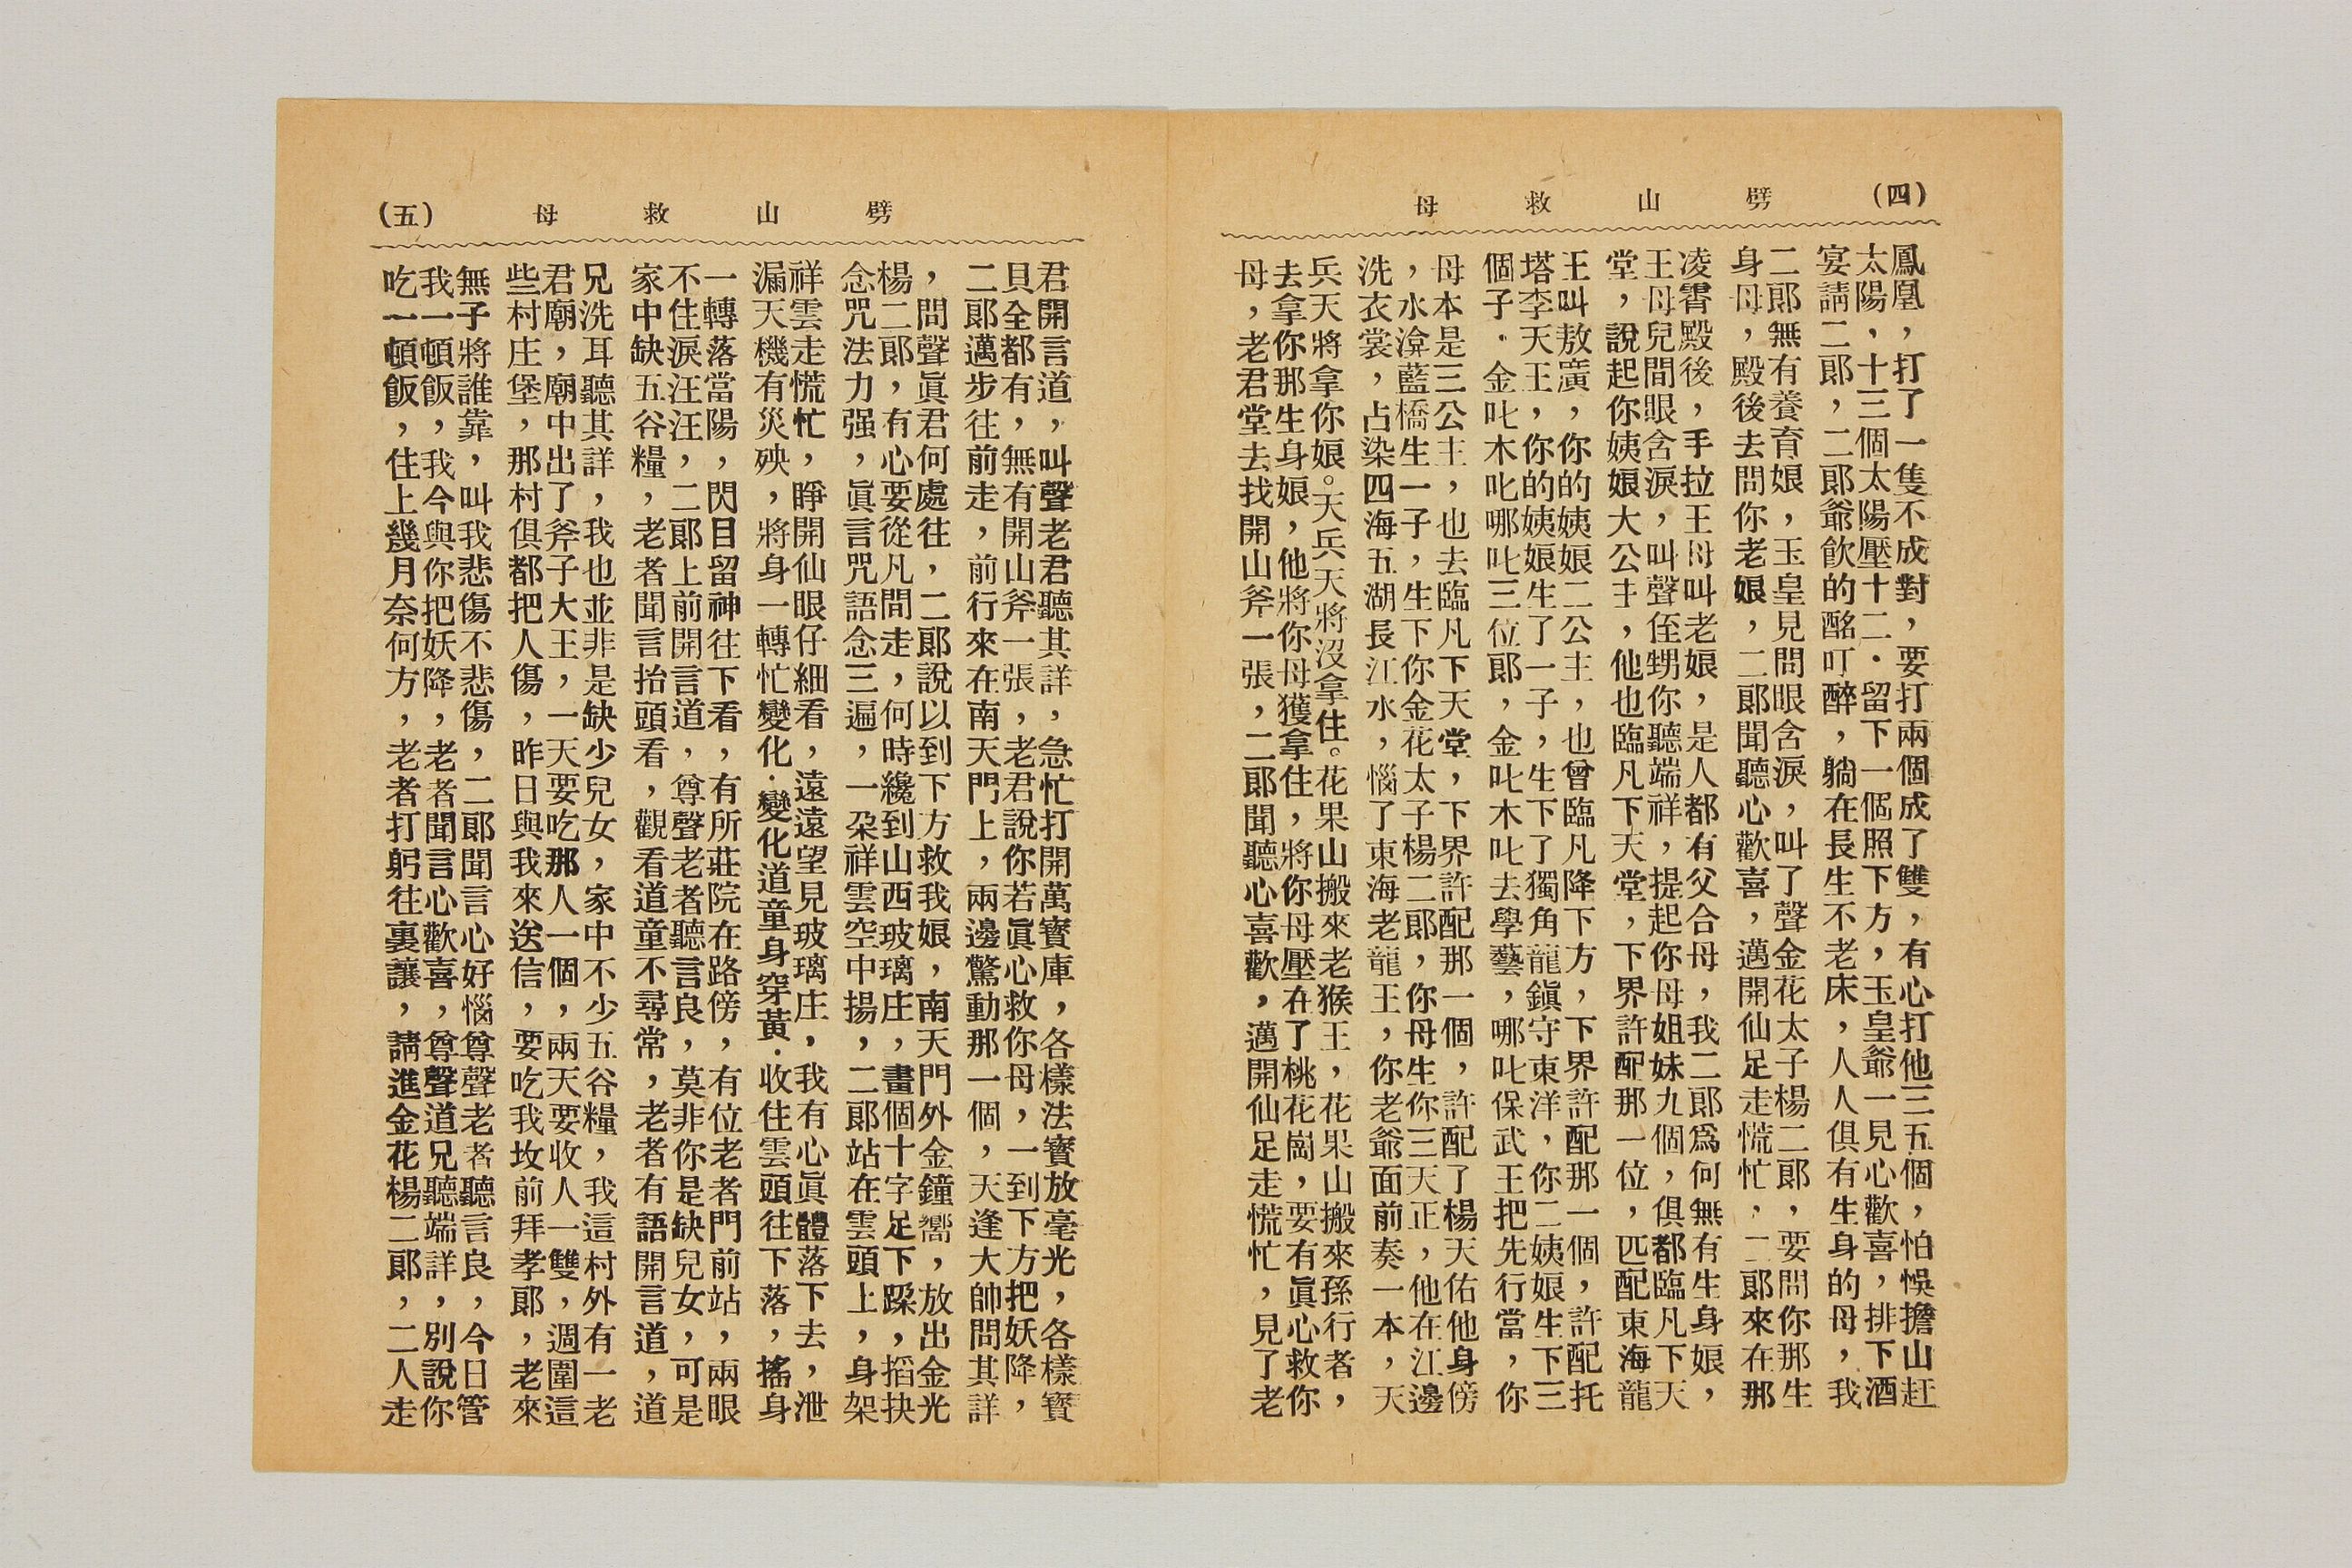 (四) 劈山救母
鳳凰，打了一隻不成對，要打兩個成了雙，有心打他三五個，怕悞擔山赶
太陽，十三個太陽壓十二·留下一個照下方，玉皇爺一見心歡喜，排下酒
宴請二郎，二郎爺飲的酩叮醉，躺在長生不老床，人人俱有生身的母，我
二郎無有養育娘，玉皇見問眼含淚，叫了聲金花太子楊二郎，要問你那生
身母，殿後去問你老娘，二郎聞聽心歡喜，邁開仙足走慌忙，二郎來在那
凌霄殿後，手拉王母叫老娘，是人都有父合母，我二郎爲何無有生身娘，
王母兒間眼含淚，叫聲侄甥你聽端祥，提起你母姐妹九個，俱都臨凡下天
堂，說起你姨娘大公主，他也臨凡下天堂，下界許配那一位，匹配東海龍
王叫敖廣，你的姨娘二公主，也曾臨凡降下方，下界許配那一個，許配托
塔李天王，你的姨娘生了一子，生下了獨角龍鎭守東洋，你二姨娘生下三
個子·金叱木叱哪叱三位郎，金叱木叱去學藝，哪叱保武王把先行當，你
母本是三公主，也去臨凡下天堂，下界許配那一個，許配了楊天佑他身傍
，水渰藍橋生一子，生下你金花太子楊二郎，你母生你三天正，他在江邊
洗衣裳，占染四海五湖長江水，惱了東海老龍王，你老爺面前奏一本，天
兵天將拿你娘。天兵天將沒拿住。花果山搬來老猴王，花果山搬來孫行者，
去拿你那生身娘，他將你母獲拿住，將你母壓在了桃花崗，要有眞心救你
母，老君堂去找開山斧一張，二郎聞聽心喜歡，邁開仙足走慌忙，見了老
(五) 劈山救母
君開言道，叫聲老君聽其詳，急忙打開萬寳庫，各樣法寳放毫光，各樣寳
貝全都有，無有開山斧一張，老君說你若眞心救你母，一到下方把妖降，
二郎邁步往前走，前行來在南天門上，兩邊驚動那一個，天逢大帥問其詳
，問聲眞君何處往，二郎說以到下方救我娘，南天門外金鐘嚮，放出金光
楊二郎，有心要從凡間走，何時纔到山西玻璃庄，畫個十字足下跺，搯抉
念咒法力强，眞言咒語念三遍，一朶祥雲空中揚，二郎站在雲頭上，身架
祥雲走慌忙，睜開仙眼仔細看，遠遠望見玻璃庄，我有心眞體落下去，泄
漏天機有災殃，將身一轉忙變化·變化道童身穿黃·收住雲頭往下落，搖身
一轉落當陽，閃目留神往下看，有所莊院在路傍，有位老者門前站，兩眼
不住淚汪汪，二郎上前開言道，尊聲老者聽言良，莫非你是缺兒女，可是
家中缺五谷糧，老者聞言抬頭看，觀看道童不尋常，老者有語開言道，道
兄洗耳聽其詳，我也並非是缺少兒女，家中不少五谷糧，我這村外有一老
君廟，廟中出了斧子大王，一天要吃那人一個，兩天要收人一雙，週圍這
些村庄堡，那村俱都把人傷，昨日與我來送信，要吃我坟前拜孝郎，老來
無子將誰靠，叫我悲傷不悲傷，二郎聞言心好惱尊聲老者聽言良，今日管
我一頓飯，我今與你把妖降，老者聞言心歡喜，尊聲道兄聽端詳，別說你
吃一頓飯，住上幾月奈何方，老者打躬往裏讓，請進金花楊二郎，二人走